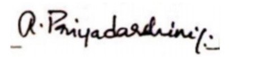 A. Priyadarshini